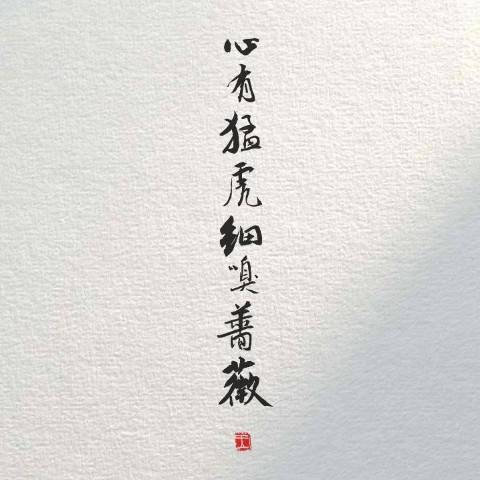 心有猛虎细嗅蔷薇